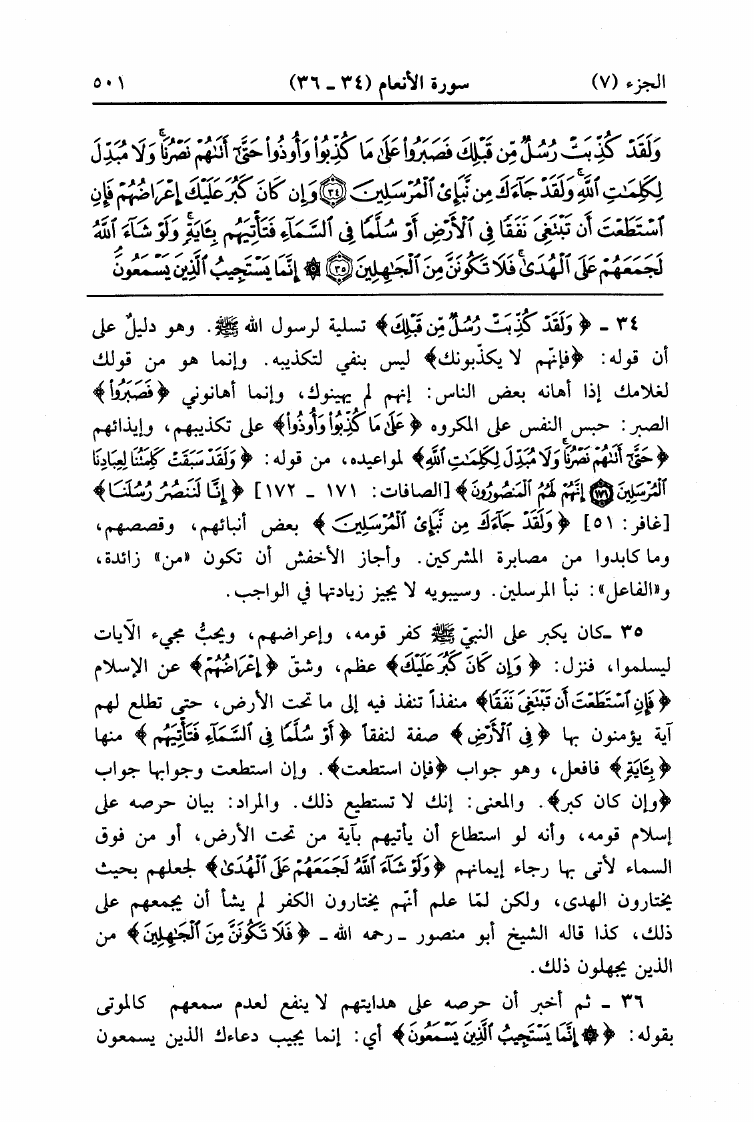 الجزء (٧) سورة الأنعام (٣٤ ـ ٣٦) ٥٠١
وَلَقَدْ كُذِّبَتْ رُسُلٌ مِّن قَبْلِكَ فَصَبَرُوا۟ عَلَىٰ مَا كُذِّبُوا۟ وَأُوذُوا۟ حَتَّىٰٓ أَتَىٰهُمْ نَصْرُنَا ۚ وَلَا مُبَدِّلَ
لِكَلِمَٰتِ ٱللَّهِ ۚ وَلَقَدْ جَآءَكَ مِن نَّبَإِى۟ ٱلْمُرْسَلِينَ ﴿٣٤﴾ وَإِن كَانَ كَبُرَ عَلَيْكَ إِعْرَاضُهُمْ فَإِنِ
ٱسْتَطَعْتَ أَن تَبْتَغِىَ نَفَقًا فِى ٱلْأَرْضِ أَوْ سُلَّمًا فِى ٱلسَّمَآءِ فَتَأْتِيَهُم بِـَٔايَةٍ ۚ وَلَوْ شَآءَ ٱللَّهُ
لَجَمَعَهُمْ عَلَى ٱلْهُدَىٰ ۚ فَلَا تَكُونَنَّ مِنَ ٱلْجَٰهِلِينَ ﴿٣٥﴾ ۞ إِنَّمَا يَسْتَجِيبُ ٱلَّذِينَ يَسْمَعُونَ ۘ
٣٤ ـ ﴿وَلَقَدْ كُذِّبَتْ رُسُلٌ مِّن قَبْلِكَ﴾ تسلية لرسول الله ﷺ. وهو دليلٌ على
أن قوله: ﴿فإنّهم لا يكذّبونك﴾ ليس بنفي لتكذيبه. وإنما هو من قولك
لغلامك إذا أهانه بعض الناس: إنهم لم يهينوك، وإنما أهانوني ﴿فَصَبَرُوا۟﴾
الصبر: حبس النفس على المكروه ﴿عَلَىٰ مَا كُذِّبُوا۟ وَأُوذُوا۟﴾ على تكذيبهم، وإيذائهم
﴿حَتَّىٰٓ أَتَىٰهُمْ نَصْرُنَا ۚ وَلَا مُبَدِّلَ لِكَلِمَٰتِ ٱللَّهِ﴾ لمواعيده، من قوله: ﴿وَلَقَدْ سَبَقَتْ كَلِمَتُنَا لِعِبَادِنَا
ٱلْمُرْسَلِينَ ﴿١٧١﴾ إِنَّهُمْ لَهُمُ ٱلْمَنصُورُونَ﴾ [الصافات: ١٧١ ـ ١٧٢] ﴿إِنَّا لَنَنصُرُ رُسُلَنَا﴾
[غافر: ٥١] ﴿وَلَقَدْ جَآءَكَ مِن نَّبَإِى۟ ٱلْمُرْسَلِينَ﴾ بعض أنبائهم، وقصصهم،
وما كابدوا من مصابرة المشركين. وأجاز الأخفش أن تكون «من» زائدة،
و«الفاعل»: نبأ المرسلين. وسيبويه لا يجيز زيادتها في الواجب.
٣٥ ـ كان يكبر على النبيّ ﷺ كفر قومه، وإعراضهم، ويحبُّ مجيء الآيات
ليسلموا، فنزل: ﴿وَإِن كَانَ كَبُرَ عَلَيْكَ﴾ عظم، وشقّ ﴿إِعْرَاضُهُمْ﴾ عن الإسلام
﴿فَإِنِ ٱسْتَطَعْتَ أَن تَبْتَغِىَ نَفَقًا﴾ منفذاً تنفذ فيه إلى ما تحت الأرض، حتى تطلع لهم
آية يؤمنون بها ﴿فِى ٱلْأَرْضِ﴾ صفة لنفقاً ﴿أَوْ سُلَّمًا فِى ٱلسَّمَآءِ فَتَأْتِيَهُم﴾ منها
﴿بِـَٔايَةٍ﴾ فافعل، وهو جواب ﴿فإن استطعت﴾. وإن استطعت وجوابها جواب
﴿وإن كان كبر﴾. والمعنى: إنك لا تستطيع ذلك. والمراد: بيان حرصه على
إسلام قومه، وأنه لو استطاع أن يأتيهم بآية من تحت الأرض، أو من فوق
السماء لأتى بها رجاء إيمانهم ﴿وَلَوْ شَآءَ ٱللَّهُ لَجَمَعَهُمْ عَلَى ٱلْهُدَىٰ﴾ لجعلهم بحيث
يختارون الهدى، ولكن لمّا علم أنّهم يختارون الكفر لم يشأ أن يجمعهم على
ذلك، كذا قاله الشيخ أبو منصور ـ رحمه الله ـ ﴿فَلَا تَكُونَنَّ مِنَ ٱلْجَٰهِلِينَ﴾ من
الذين يجهلون ذلك.
٣٦ ـ ثم أخبر أن حرصه على هدايتهم لا ينفع لعدم سمعهم كالموتى
بقوله: ﴿۞ إِنَّمَا يَسْتَجِيبُ ٱلَّذِينَ يَسْمَعُونَ﴾ أي: إنما يجيب دعاءك الذين يسمعون